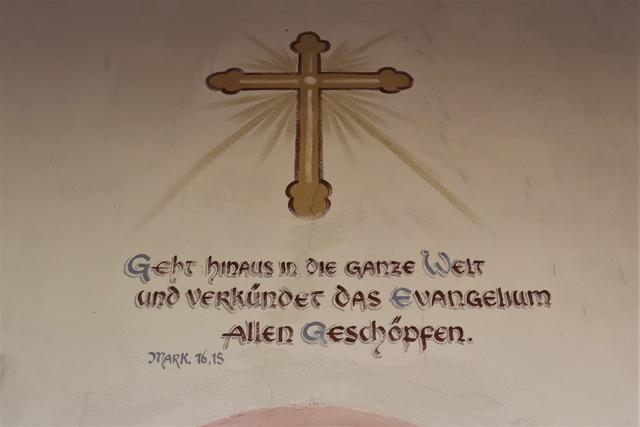 Geht hinaus in die ganze Welt
und verkündet das Evangelium
Allen Geschöpfen.
Mark. 16,15